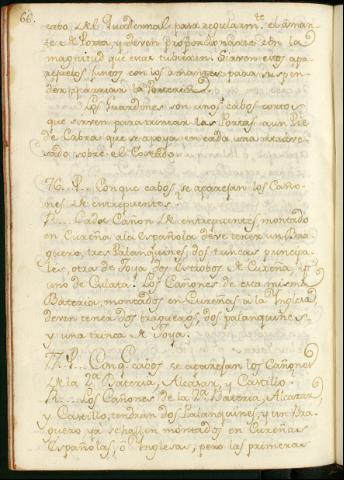 66.
cabo del Guadernal para regularmte el aman-
te de Porta, y deven proporcionarse con la
magnitud que estas tubieren: Sirven estos apa-
rejuelos juntos con los amantes para suspen-
der y arriar la Porteria.
Los Guardines son unos cabos cortos
que sirven para trincar las Portas a un Pie
de Cabra que se apoya en cada una atrave-
sado sobre el Costado.
76. P... Con que cabos se aparejan los Caño-
nes de entrepuentes.
R... Cada Cañon de entrepuentes montado
en Cureña a la Española deve tener un Bra-
guero, tres Palanquines, dos trincas principa-
les, otra de Joya, dos Estrobos de Cureña, y
uno de Culata. Los Cañones de esta misma
Bateria, montados en Cureñas a la Ynglesa
deven tener dos bragueros, dos palanquines,
y una trinca de Joya.
77. P... Con q. cabos se aparejan los Cañones
de la 2a. Bateria, Alcazar, y Castillo.
R... Los Cañones de la 2a. Bateria, Alcazar,
y Castillo, tendran dos Palanquines, y un Bra-
guero ya se hallen montados en Cureñas
Españolas, ò Inglesas, pero las primeras